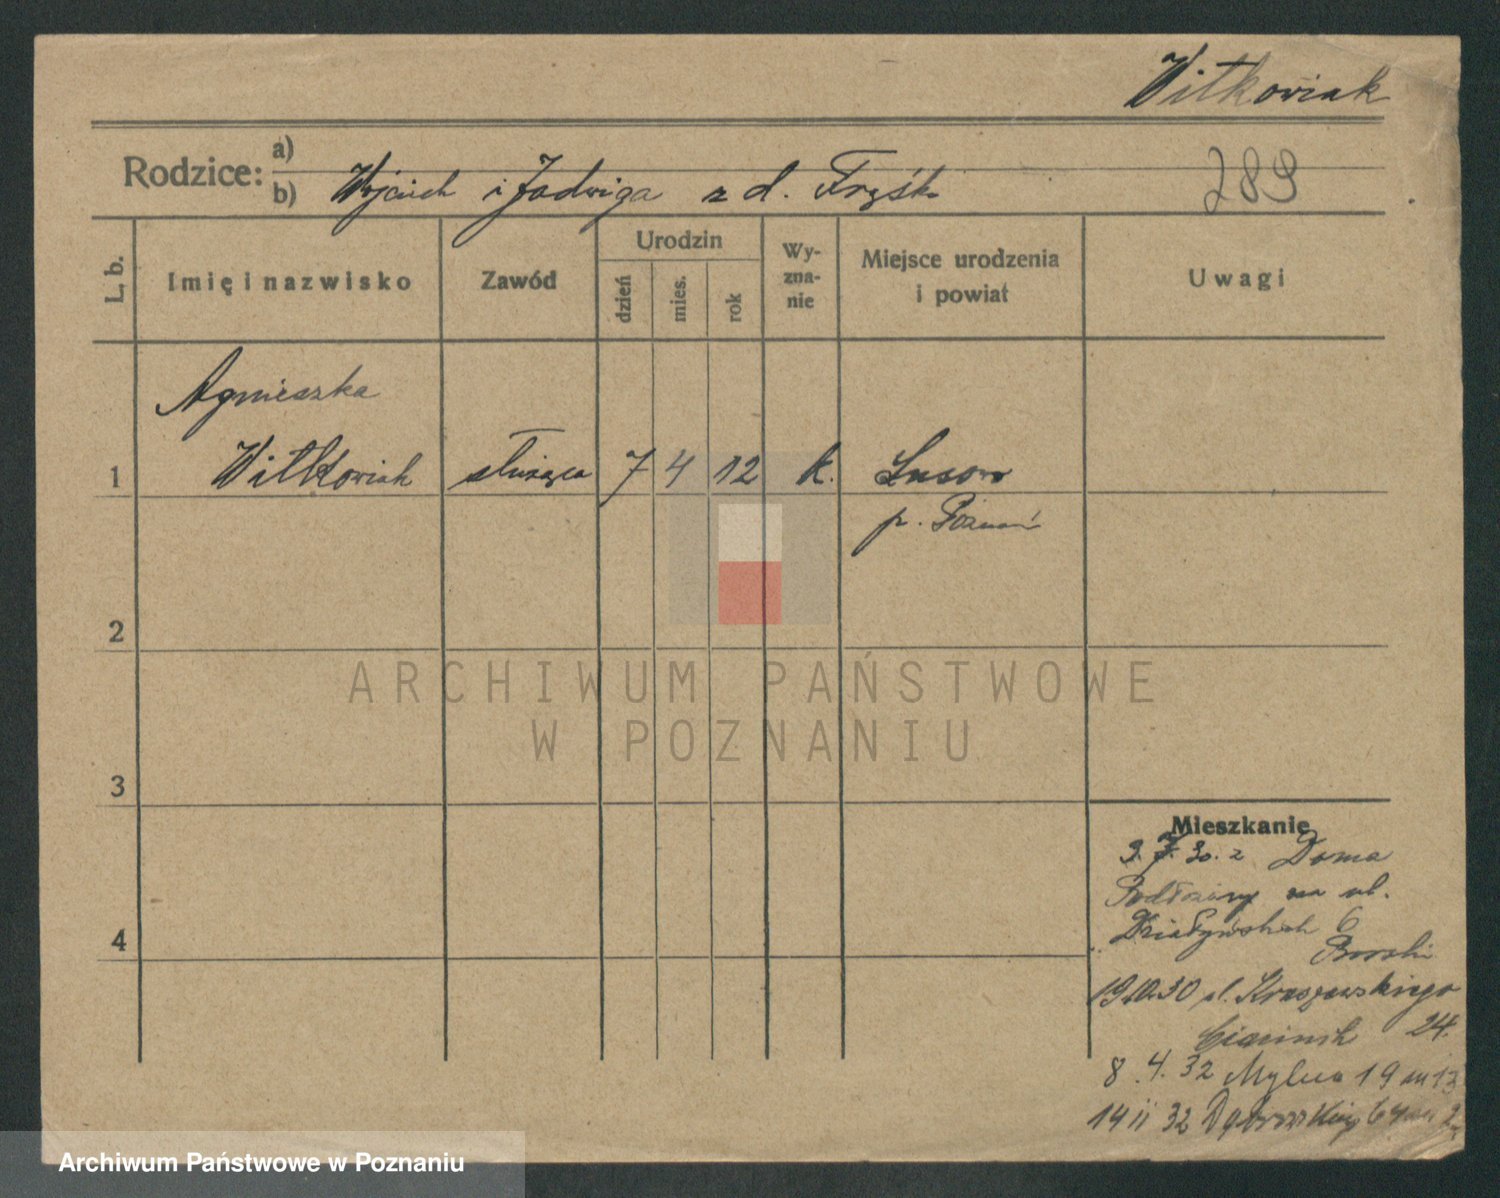 Witkowiak
Rodzice: a)
b) Wojciech i Jadwiga z d. Fryśk
289
L. b.
Imię i nazwisko
Zawód
Urodzin
dzień
mies.
rok
Wy-
zna-
nie
Miejsce urodzenia
i powiat
Uwagi
Agnieszka
1 Witkowiak służąca 7 4 12 k. Lusowo
p. Poznań
2
3
4
ARCHIWUM PAŃSTWOWE
W POZNANIU
Mieszkanie
3. 7. 30. z Doma
na ul.
Działyńskich 6
19.10.30 ul. Kraszewskiego
24.
8. 4. 32 Mylna 19 m 13
14 11 32 Dąbrowskiego 64 m
Archiwum Państwowe w Poznaniu